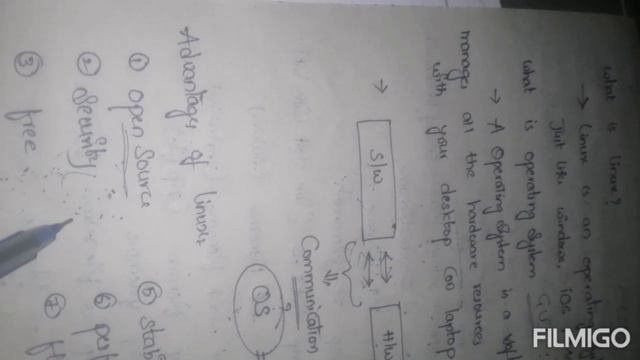 what is linux?
→ Linux is an operating
Just like windows, ios
what is operating system
→ A Operating System is a
manages all the hardware resources
with your desktop (or) laptop
→ S/W H/W
Communication
OS
Advantages of linux:
① open source
② Security
③ free
⑤
⑥
⑦
FILMIGO